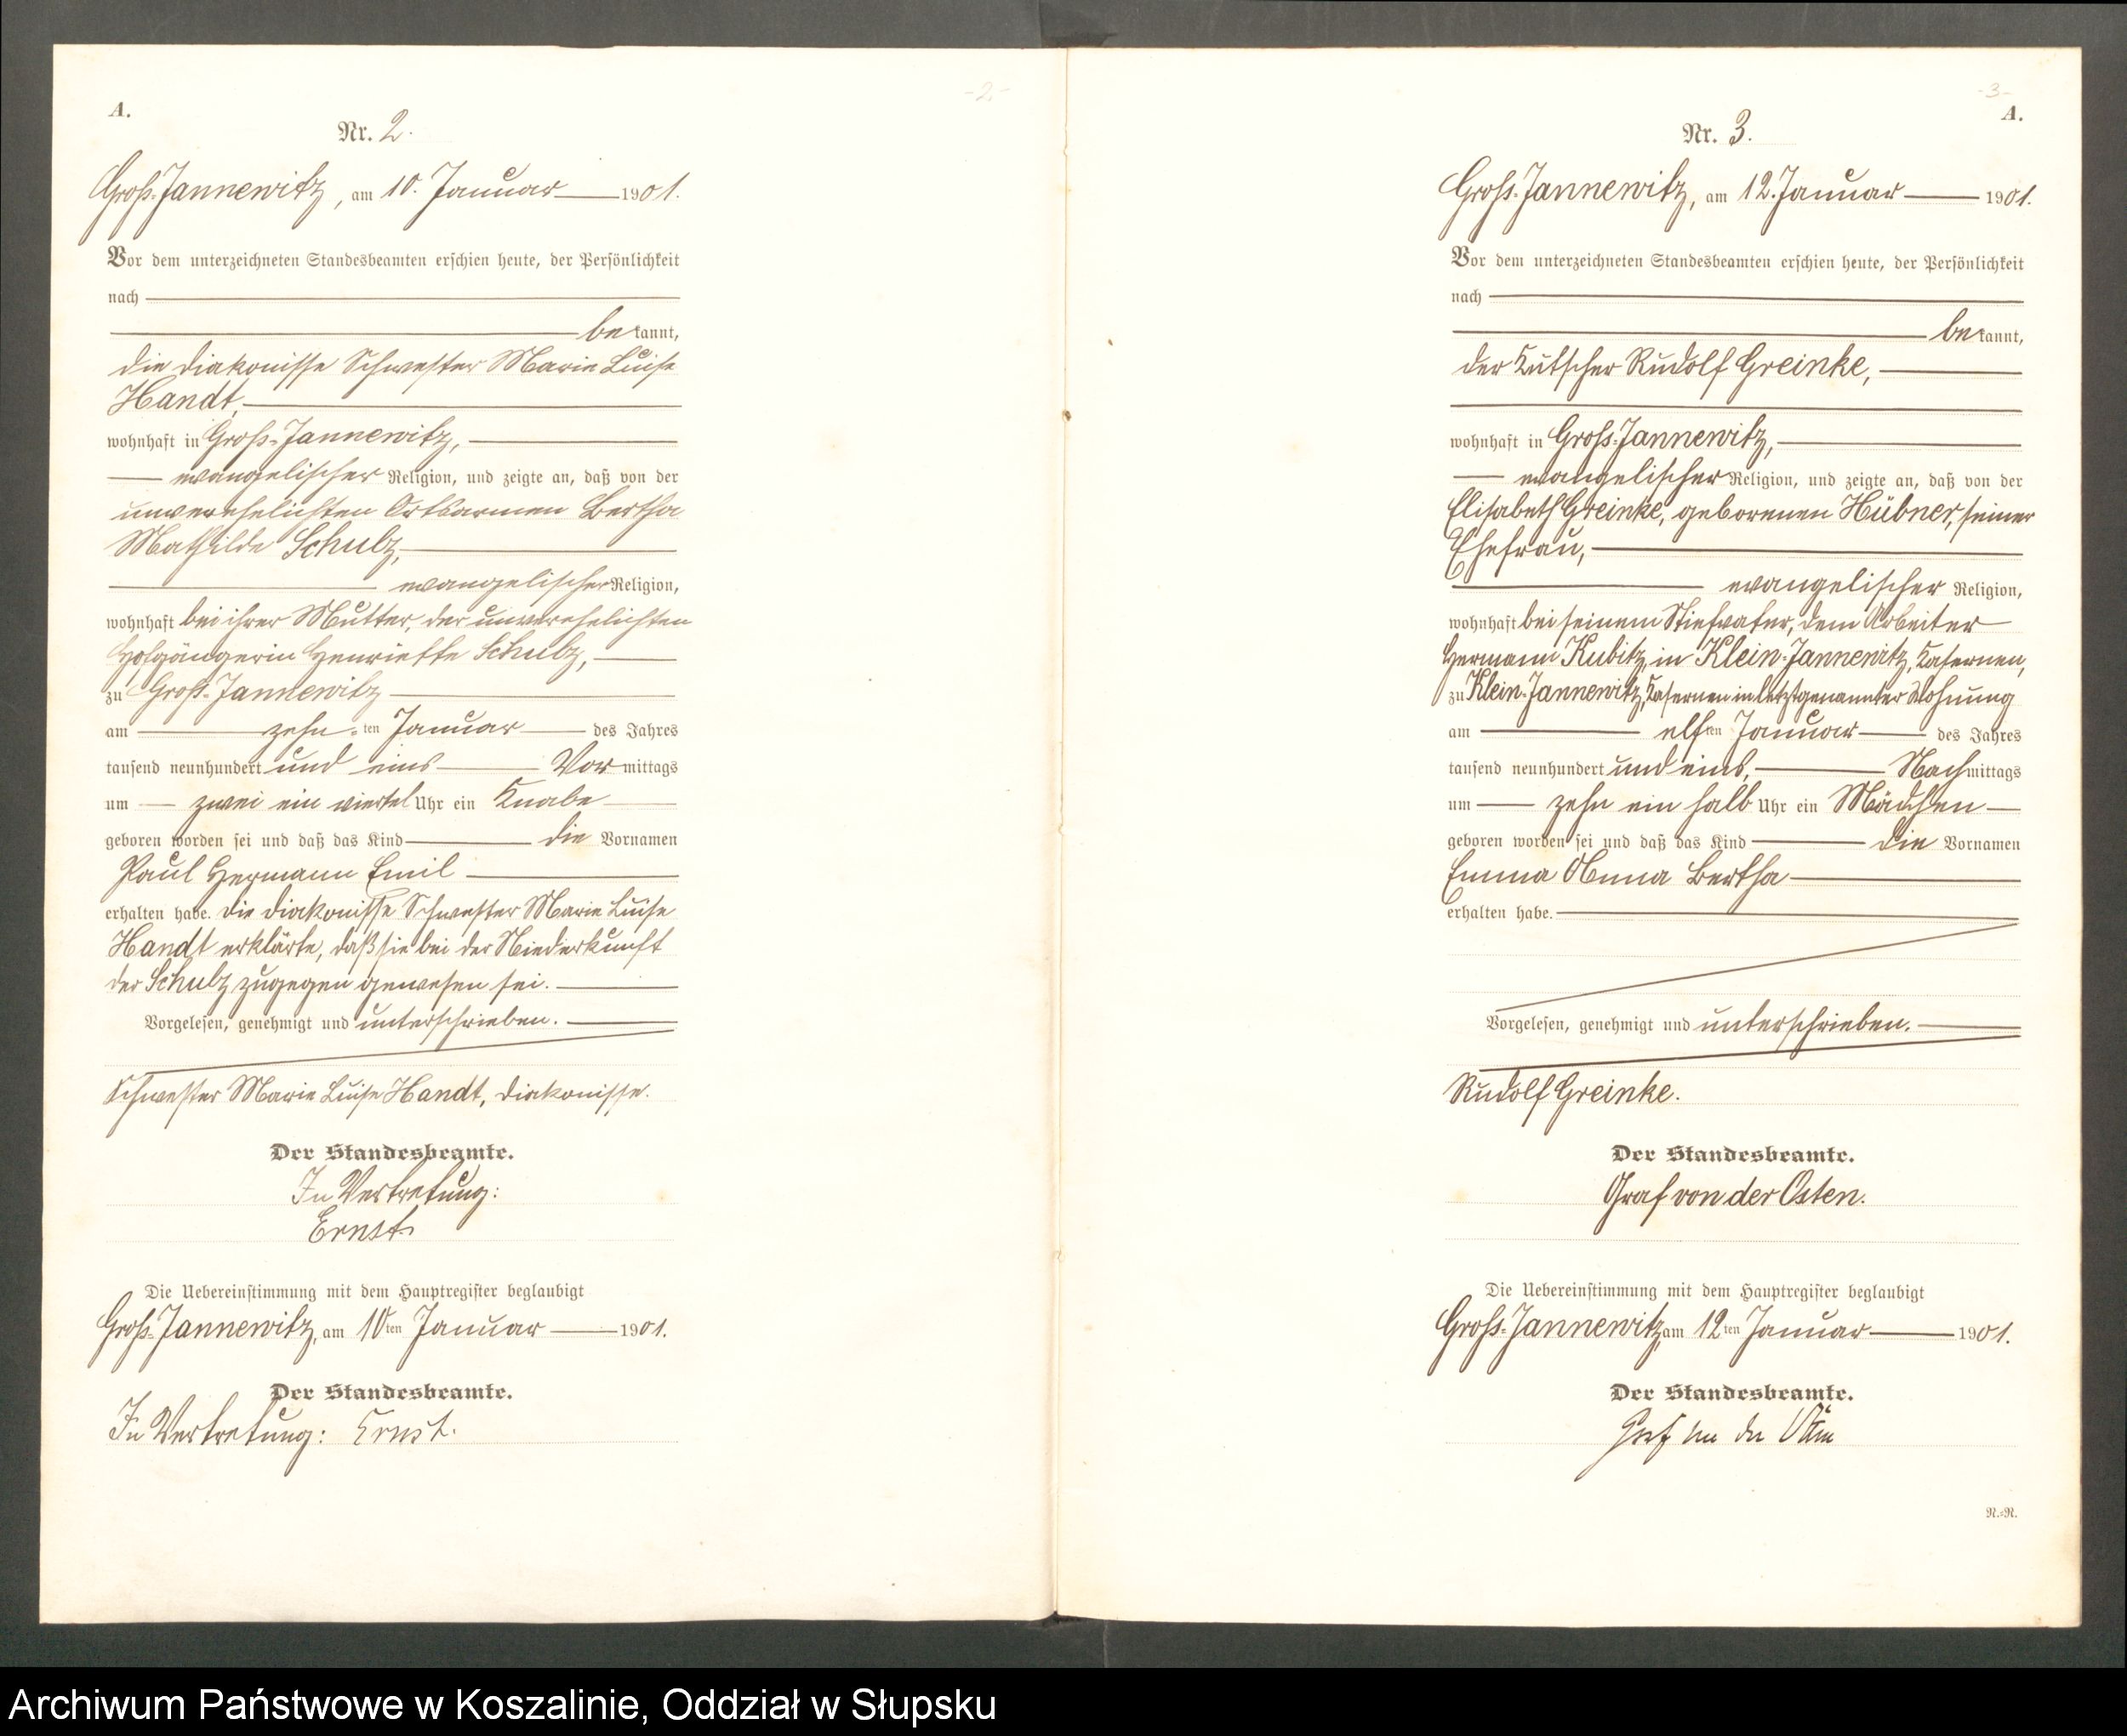 -2-
A.
Nr. 2.
Groß-Jannewitz, am 10. Januar 1901.
Vor dem unterzeichneten Standesbeamten erschien heute, der Persönlichkeit
nach
bekannt,
die Diakonisse Schwester Marie Luise
Handt,
wohnhaft in Groß-Jannewitz,
evangelischer Religion, und zeigte an, daß von der
unverehelichten Ortsarmen Bertha
Mathilde Schulz,
evangelischer Religion,
wohnhaft bei ihrer Mutter, der unverehelichten
Hofgängerin Henriette Schulz,
zu Groß-Jannewitz
am zehn-ten Januar des Jahres
tausend neunhundert und eins Vormittags
um zwei ein viertel Uhr ein Knabe
geboren worden sei und daß das Kind die Vornamen
Paul Hermann Emil
erhalten habe. Die Diakonisse Schwester Marie Luise
Handt erklärte, daß sie bei der Niederkunft
der Schulz zugegen gewesen sei.
Vorgelesen, genehmigt und unterschrieben.
Schwester Marie Luise Handt, Diakonisse.
Der Standesbeamte.
In Vertretung:
Ernst.
Die Uebereinstimmung mit dem Hauptregister beglaubigt
Groß-Jannewitz, am 10ten Januar 1901.
Der Standesbeamte.
In Vertretung: Ernst.
-3-
A.
Nr. 3.
Groß-Jannewitz, am 12. Januar 1901.
Vor dem unterzeichneten Standesbeamten erschien heute, der Persönlichkeit
nach
bekannt,
der Kutscher Rudolf Greinke,
wohnhaft in Groß-Jannewitz,
evangelischer Religion, und zeigte an, daß von der
Elisabeth Greinke, geborenen Hübner, seiner
Ehefrau,
evangelischer Religion,
wohnhaft bei seinem Stiefvater, dem Arbeiter
Hermann Kubitz in Klein-Jannewitz, Kasernen,
zu Klein-Jannewitz, Kasernen in letztgenannter Wohnung
am elften Januar des Jahres
tausend neunhundert und eins, Nachmittags
um zehn ein halb Uhr ein Mädchen
geboren worden sei und daß das Kind die Vornamen
Emma Anna Bertha
erhalten habe.
Vorgelesen, genehmigt und unterschrieben.
Rudolf Greinke.
Der Standesbeamte.
Graf von der Osten.
Die Uebereinstimmung mit dem Hauptregister beglaubigt
Groß-Jannewitz, am 12ten Januar 1901.
Der Standesbeamte.
Graf von der Osten
N.=N.
Archiwum Państwowe w Koszalinie, Oddział w Słupsku